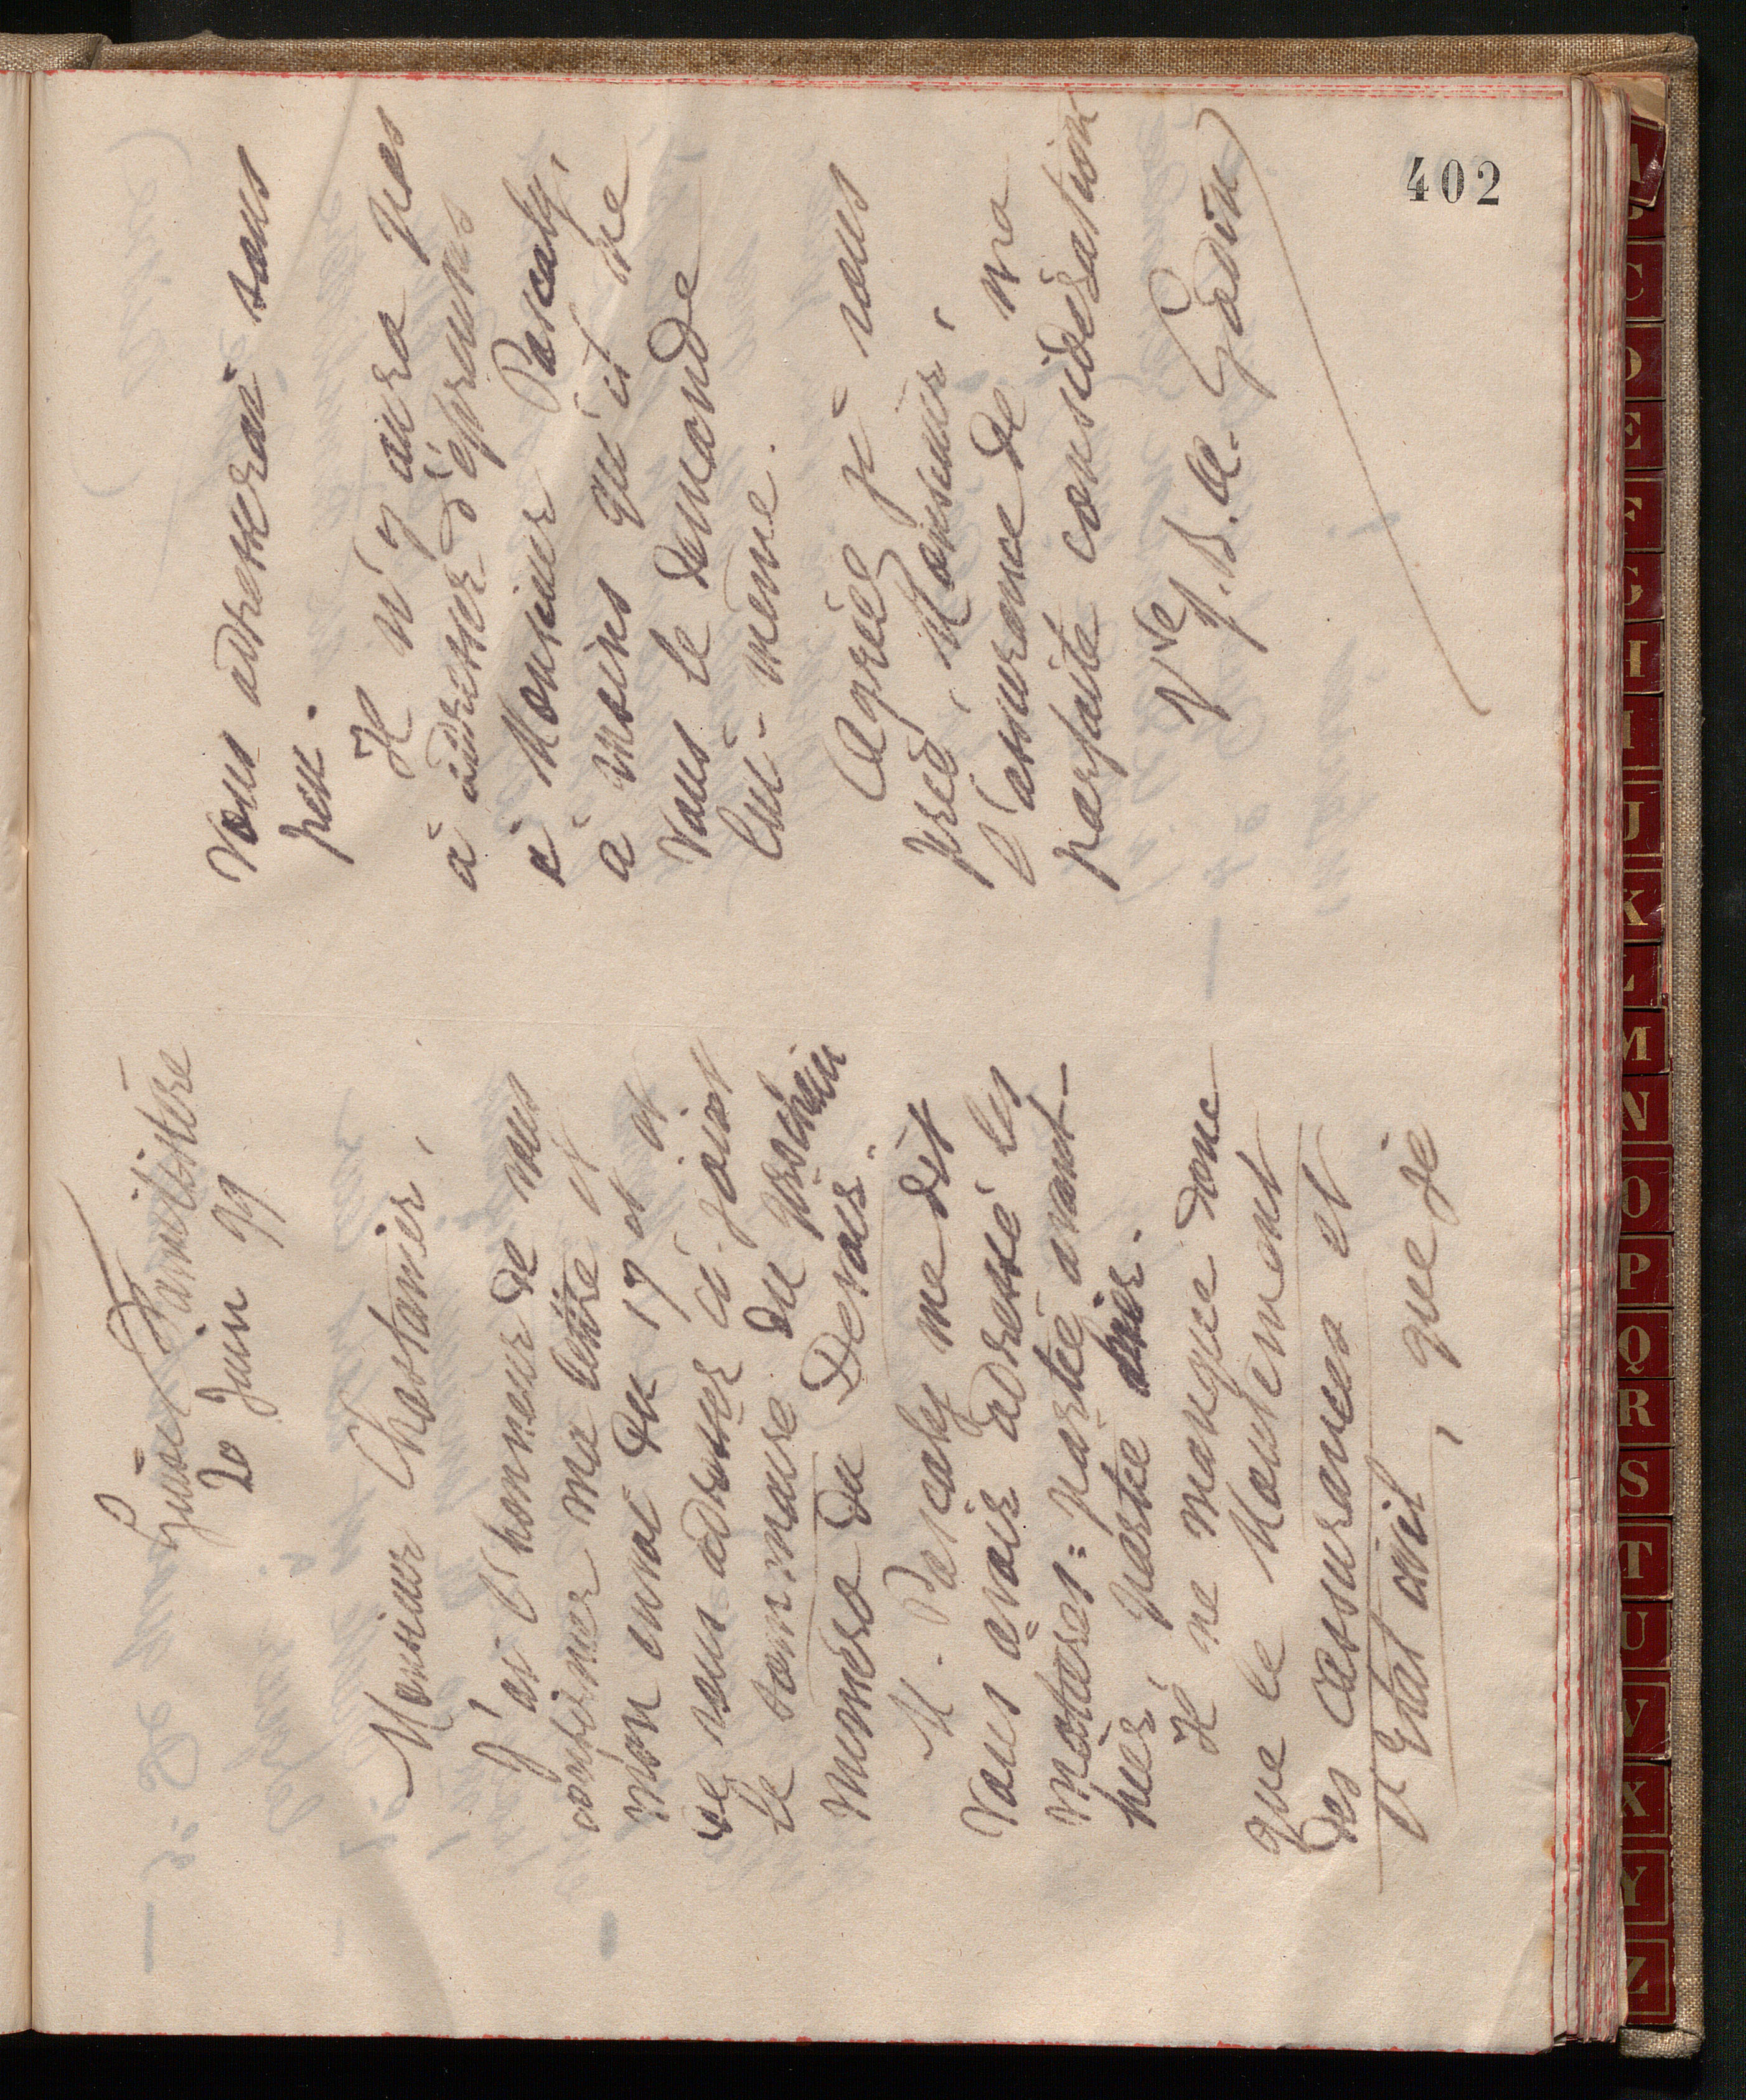 Guise Familistère
20 Juin 99
Monsieur Chastanier,
J'ai l'honneur de vous
confirmer ma lettre et
mon envoi du 17 ct et
de vous adresser ci-joint
le sommaire du prochain
numéro du Devoir.
M. Pascaly me dit
vous avoir adressé les
matières: partie avant-
hier, partie hier.
Il ne manque donc
que le Mouvement
des Assurances et
l'Etat civil, que je
vous adresserai sous
peu.
Il n'y aura pas
à adresser d'épreuves
à Monsieur Pascaly,
à moins qu'il ne
vous le demande
lui-même.
Agréez, je vous
prie, Monsieur,
l'assurance de ma
parfaite considération
Vve J. B. A. Godin
402
A
C
D
E
F
G
H
I
J
K
L
M
N
O
P
Q
R
S
T
U
V
X
Y
Z